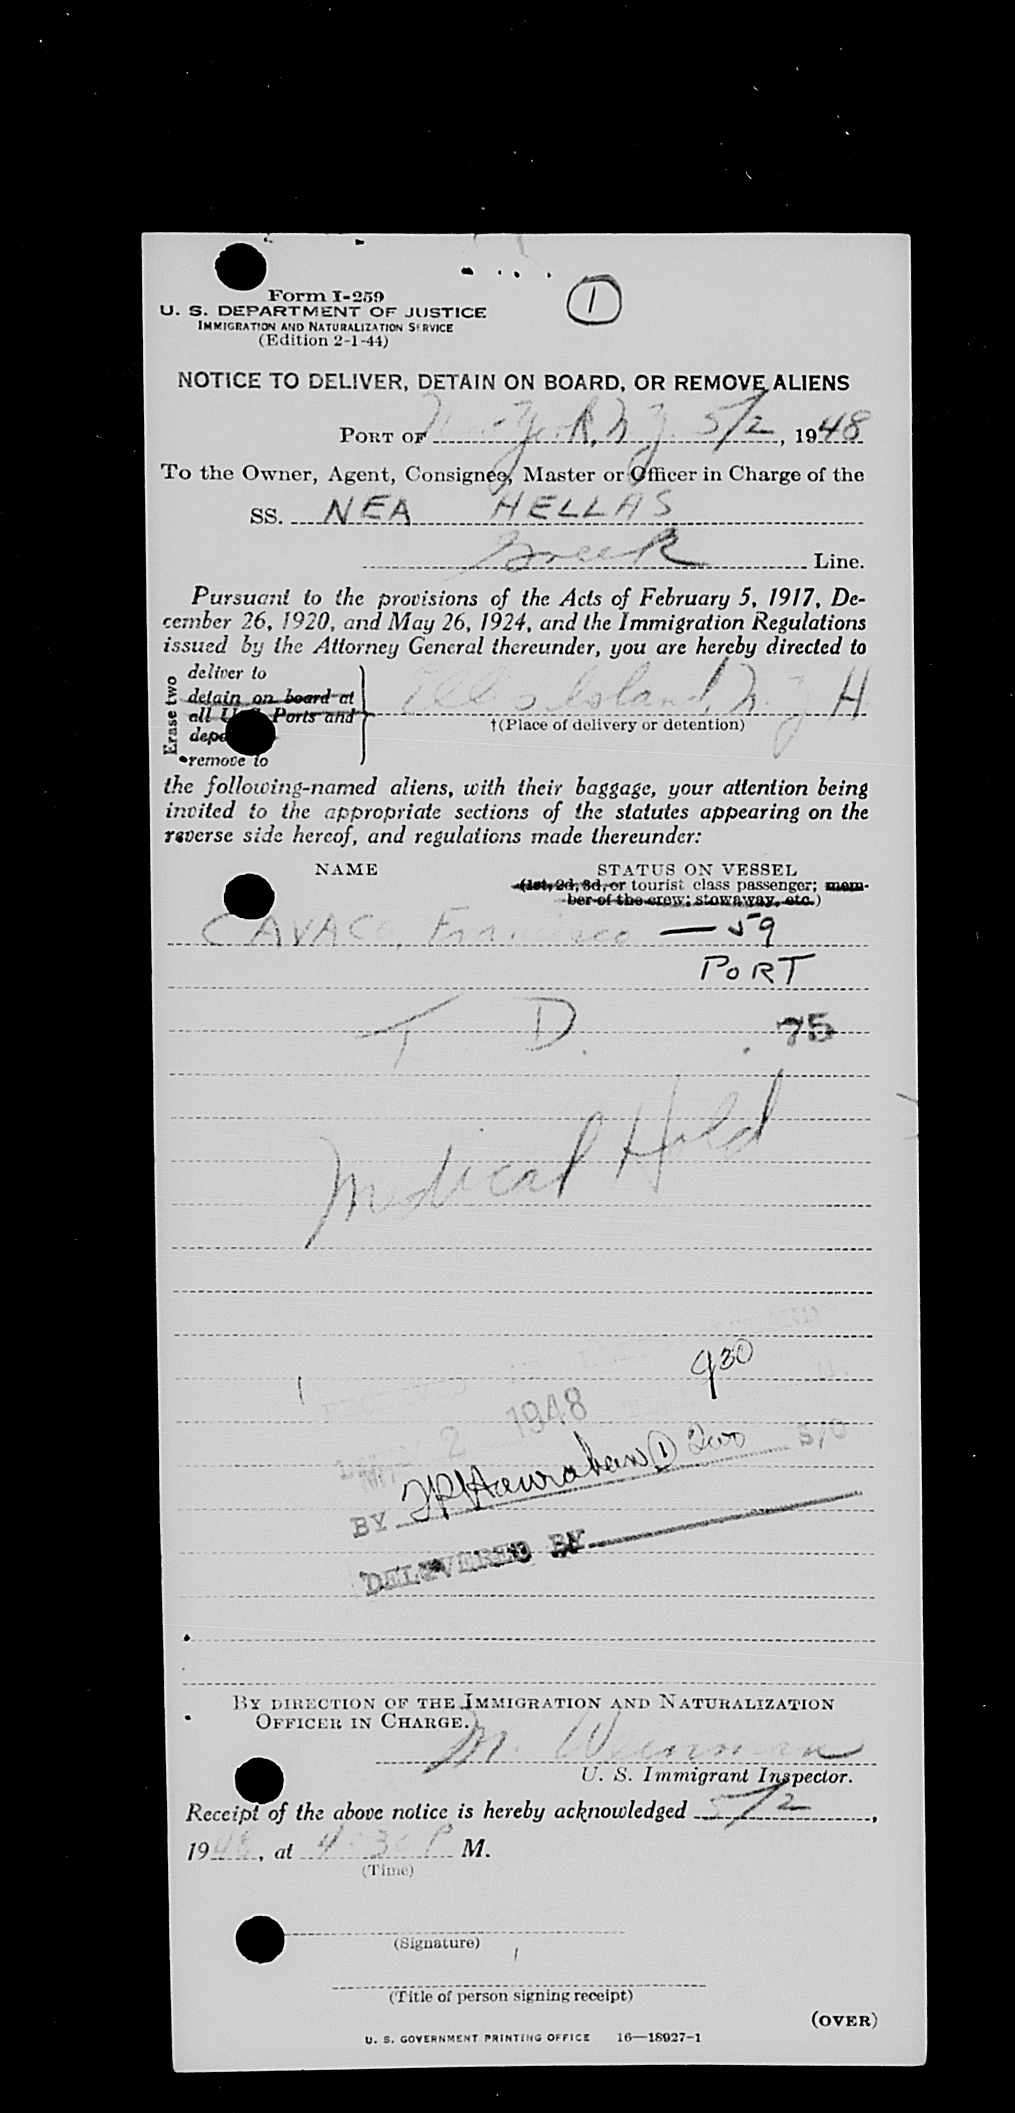 1
Form I-259
U. S. DEPARTMENT OF JUSTICE
IMMIGRATION AND NATURALIZATION SERVICE
(Edition 2-1-44)
NOTICE TO DELIVER, DETAIN ON BOARD, OR REMOVE ALIENS
PORT OF New York, N. Y. 5/2, 1948
To the Owner, Agent, Consignee, Master or Officer in Charge of the
SS. NEA HELLAS
Greek Line.
Pursuant to the provisions of the Acts of February 5, 1917, De-
cember 26, 1920, and May 26, 1924, and the Immigration Regulations
issued by the Attorney General thereunder, you are hereby directed to
Erase two
deliver to
detain on board at
all U.S. Ports and
remove to
Ellis Island, N. Y. H
†(Place of delivery or detention)
the following-named aliens, with their baggage, your attention being
invited to the appropriate sections of the statutes appearing on the
reverse side hereof, and regulations made thereunder:
NAME STATUS ON VESSEL
(1st, 2d, 3d, or tourist class passenger; mem-
ber of the crew; stowaway, etc.)
CAVACO, Francisco — 59
PORT
T D. 75
Medical Hold
930
MAY 2 1948
BY Hanrahan S/O
DELIVERED BY
BY DIRECTION OF THE IMMIGRATION AND NATURALIZATION
OFFICER IN CHARGE.
M. Weinman
U. S. Immigrant Inspector.
Receipt of the above notice is hereby acknowledged 5/2,
1948, at 4:30 P M.
(Time)
(Signature)
(Title of person signing receipt)
(OVER)
U. S. GOVERNMENT PRINTING OFFICE 16—18927-1